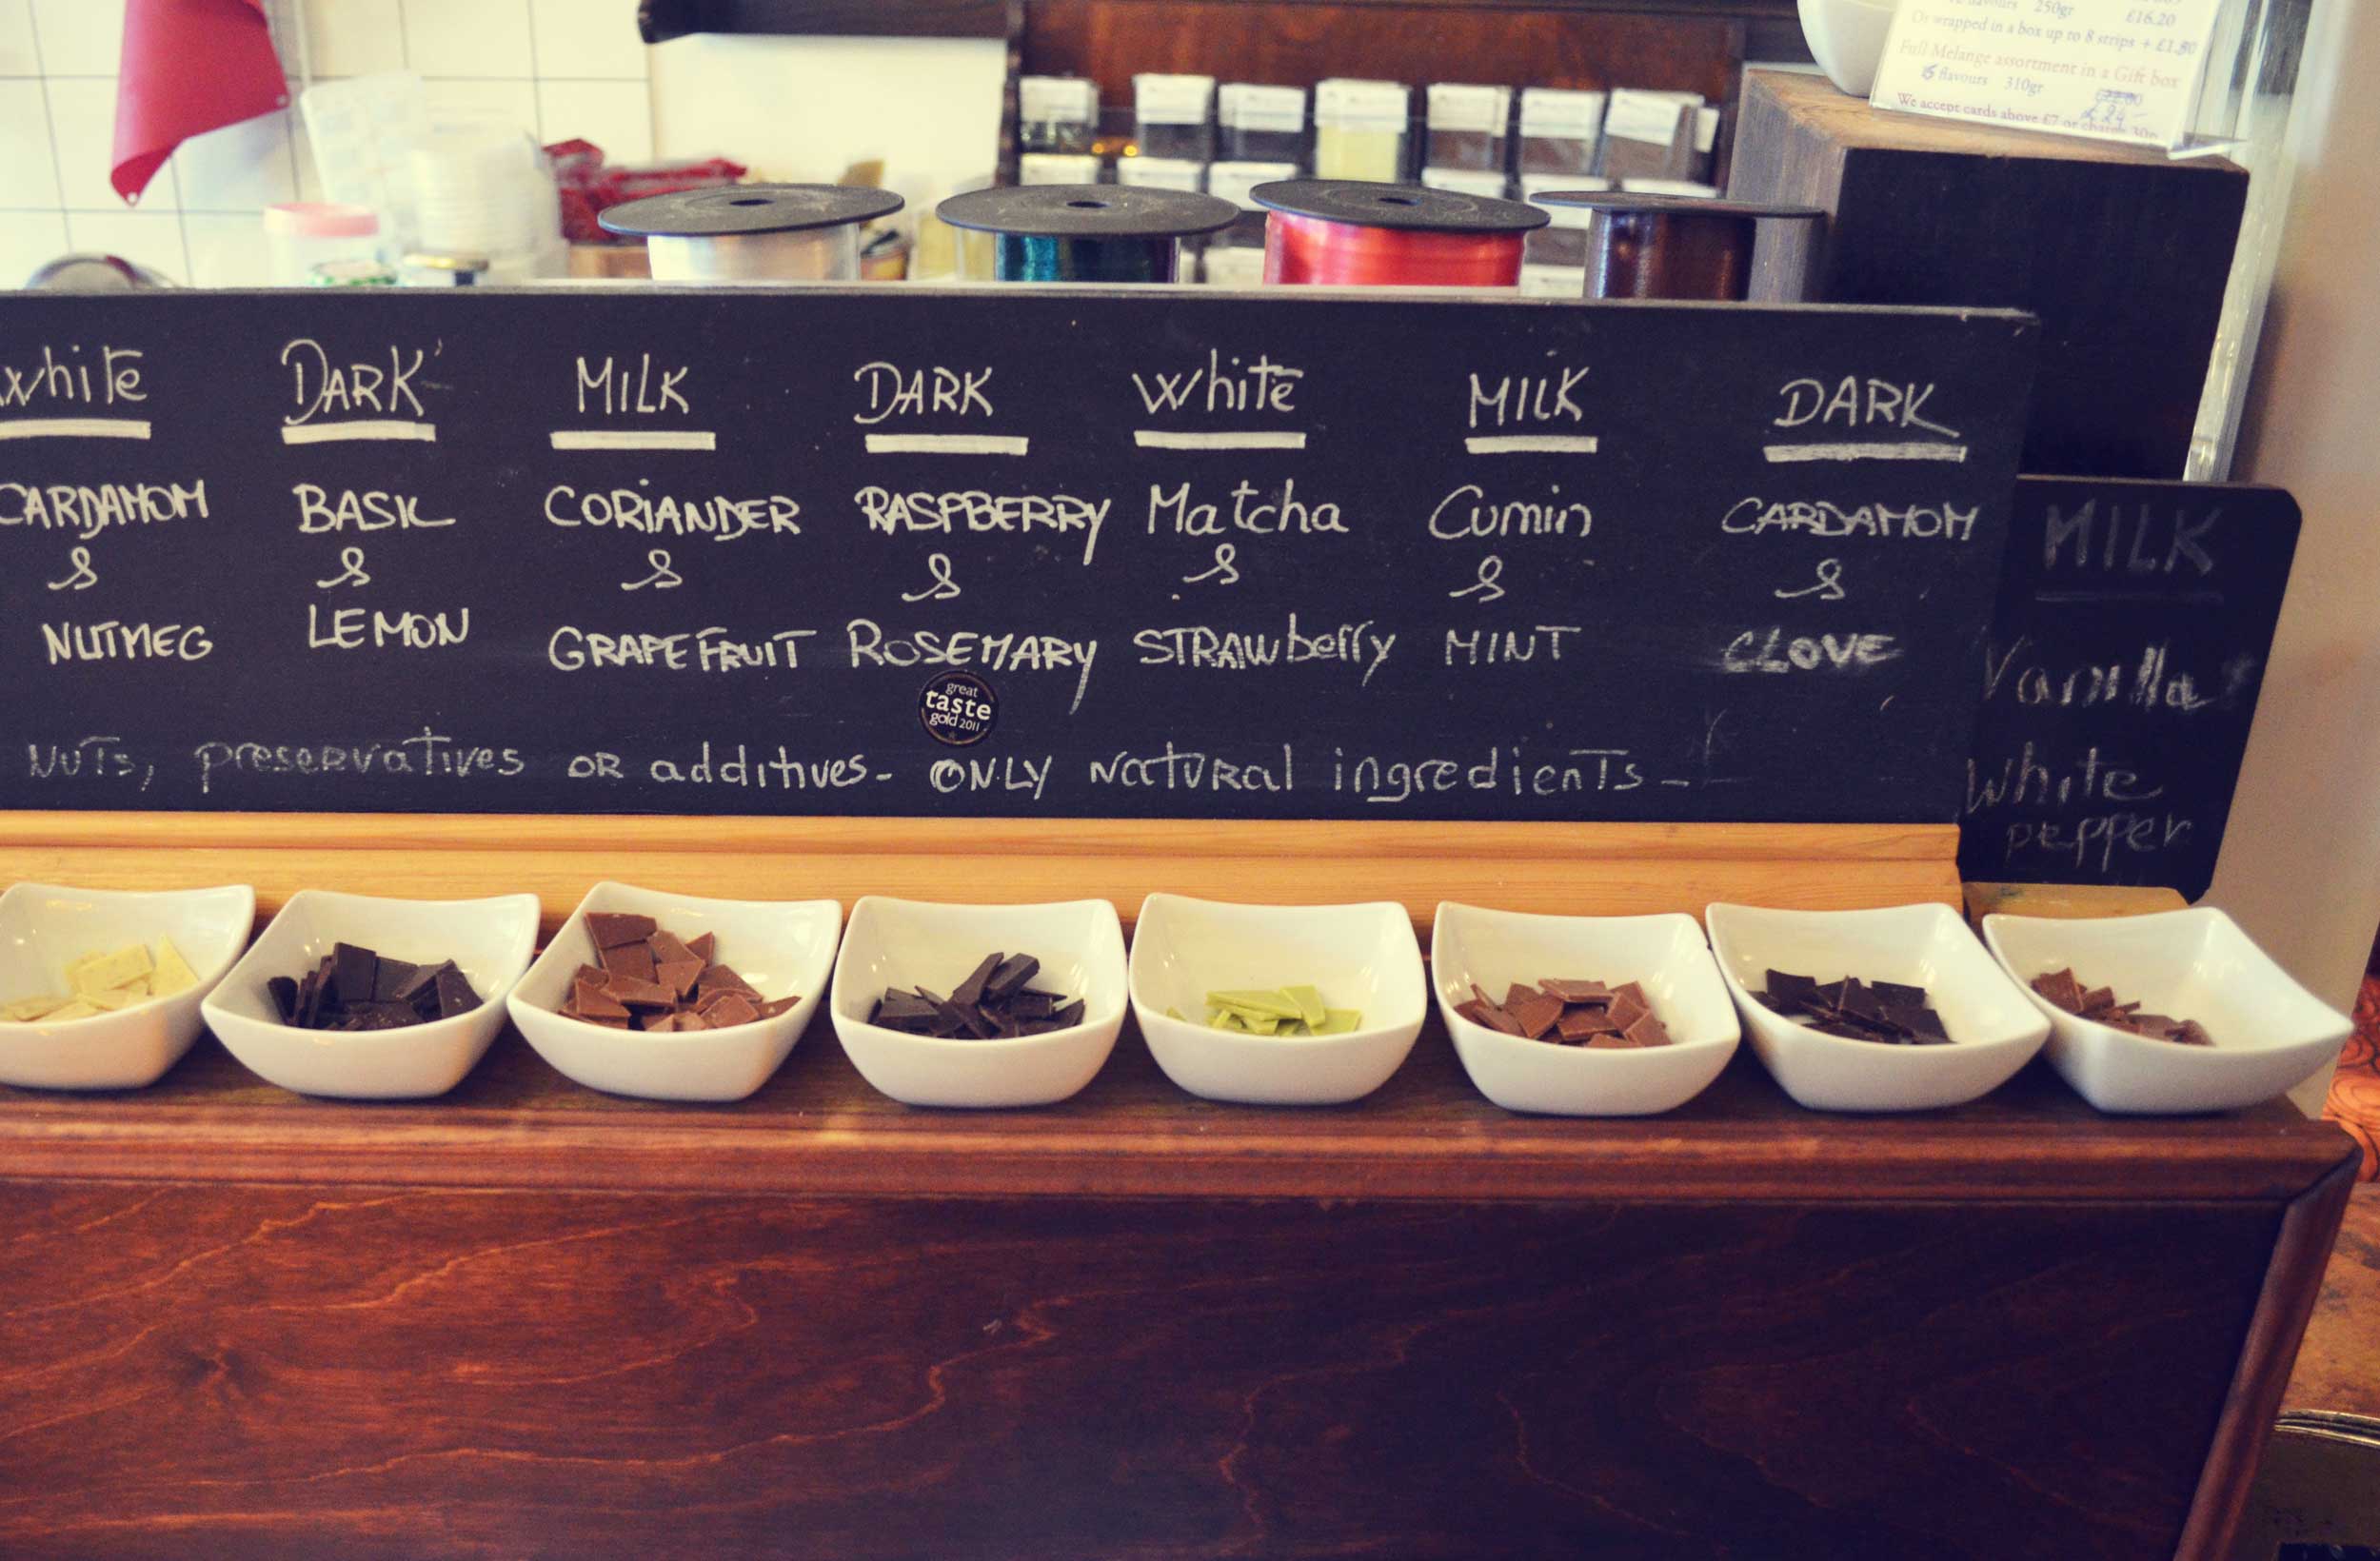 flavours 250gr £16.20
Or wrapped in a box up to 8 strips + £1.80
Full Melange assortment in a Gift box
flavours 310gr
We accept cards above £7 or charge 30p
White DARK MILK DARK White MILK DARK
CARDAMOM BASIL CORIANDER RASPBERRY Matcha Cumin CARDAMOM
& & & & & & &
NUTMEG LEMON GRAPEFRUIT ROSEMARY STRAWberry MINT CLOVE
great
taste
gold 2011
NUTs, preservatives OR additives- ONLY NatURal ingredienTs-
MILK
Vanilla
White
pepper